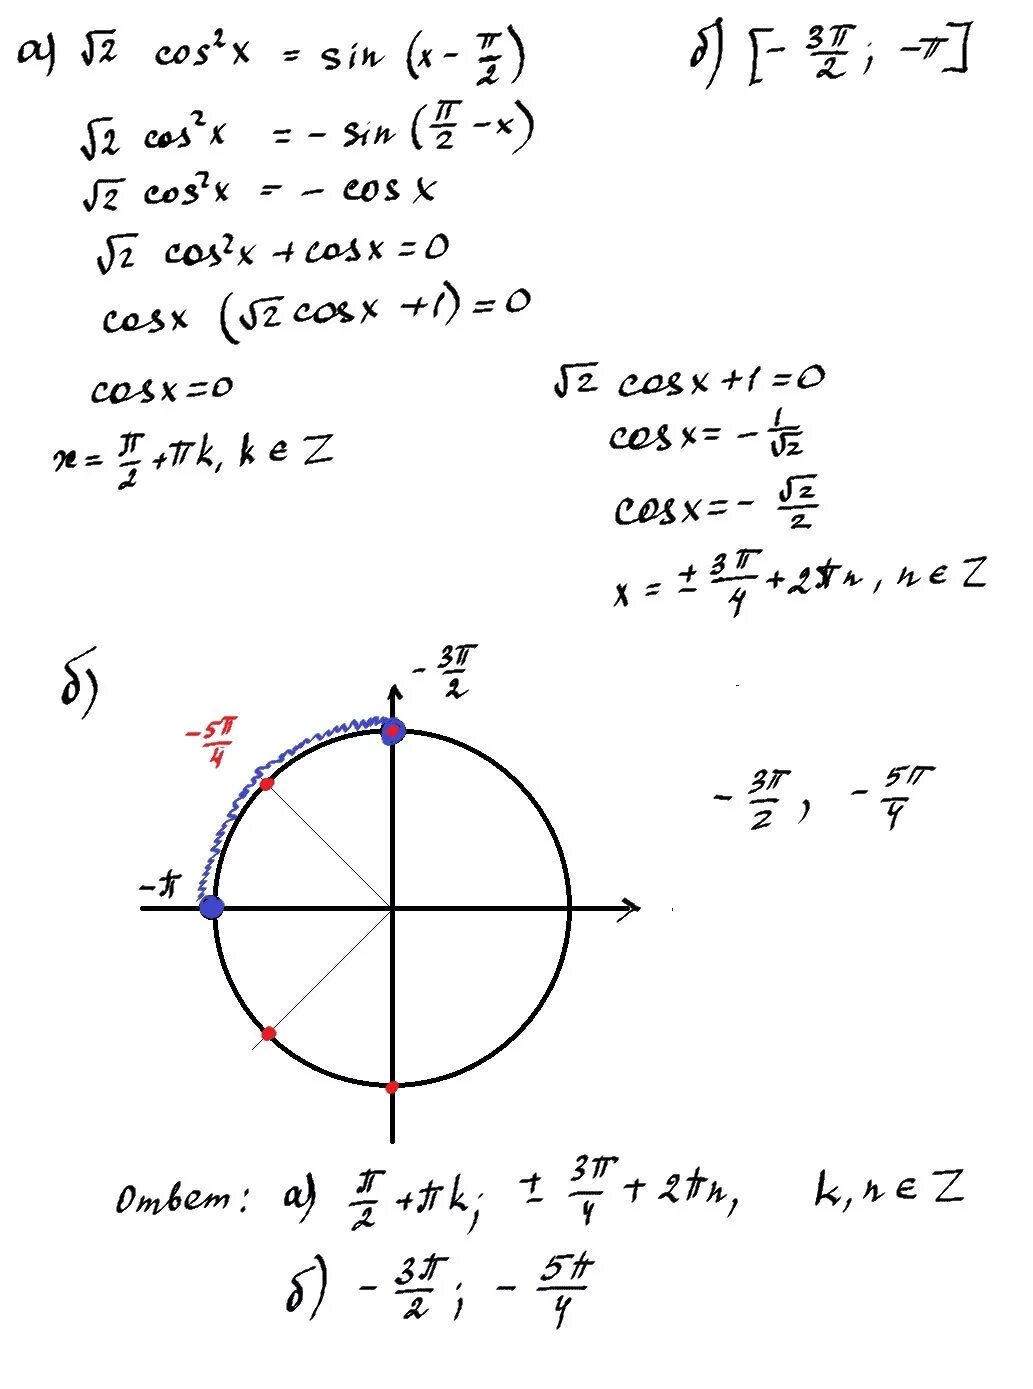 а) √2 cos²x = sin (x - π/2) б) [- 3π/2 ; -π]
√2 cos²x = - sin (π/2 - x)
√2 cos²x = - cos x
√2 cos²x + cosx = 0
cosx (√2 cosx + 1) = 0
cosx = 0
x = π/2 + πk, k ∈ Z
√2 cosx + 1 = 0
cosx = - 1/√2
cosx = - √2/2
x = ± 3π/4 + 2πn, n ∈ Z
б)
- 3π/2
- 5π/4
-π
- 3π/2 , - 5π/4
Ответ: а) π/2 + πk; ± 3π/4 + 2πn, k, n ∈ Z
б) - 3π/2 ; - 5π/4